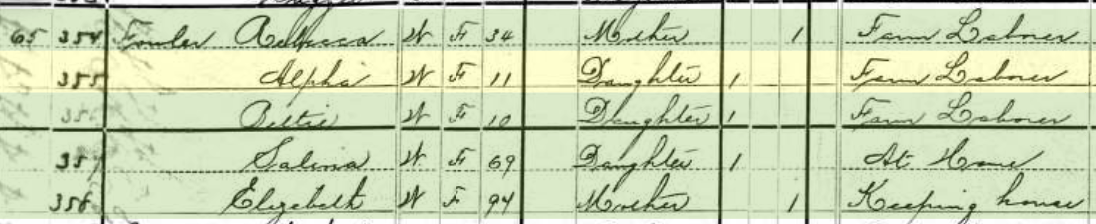 65 354 Fowler Rebecca W F 34 Mother 1 Farm Laborer
355 Alpha W F 11 Daughter 1 Farm Laborer
356 W F 10 Daughter 1 Farm Laborer
357 Salina W F 69 Daughter 1 At Home
358 Elizabeth W F 94 Mother 1 Keeping house